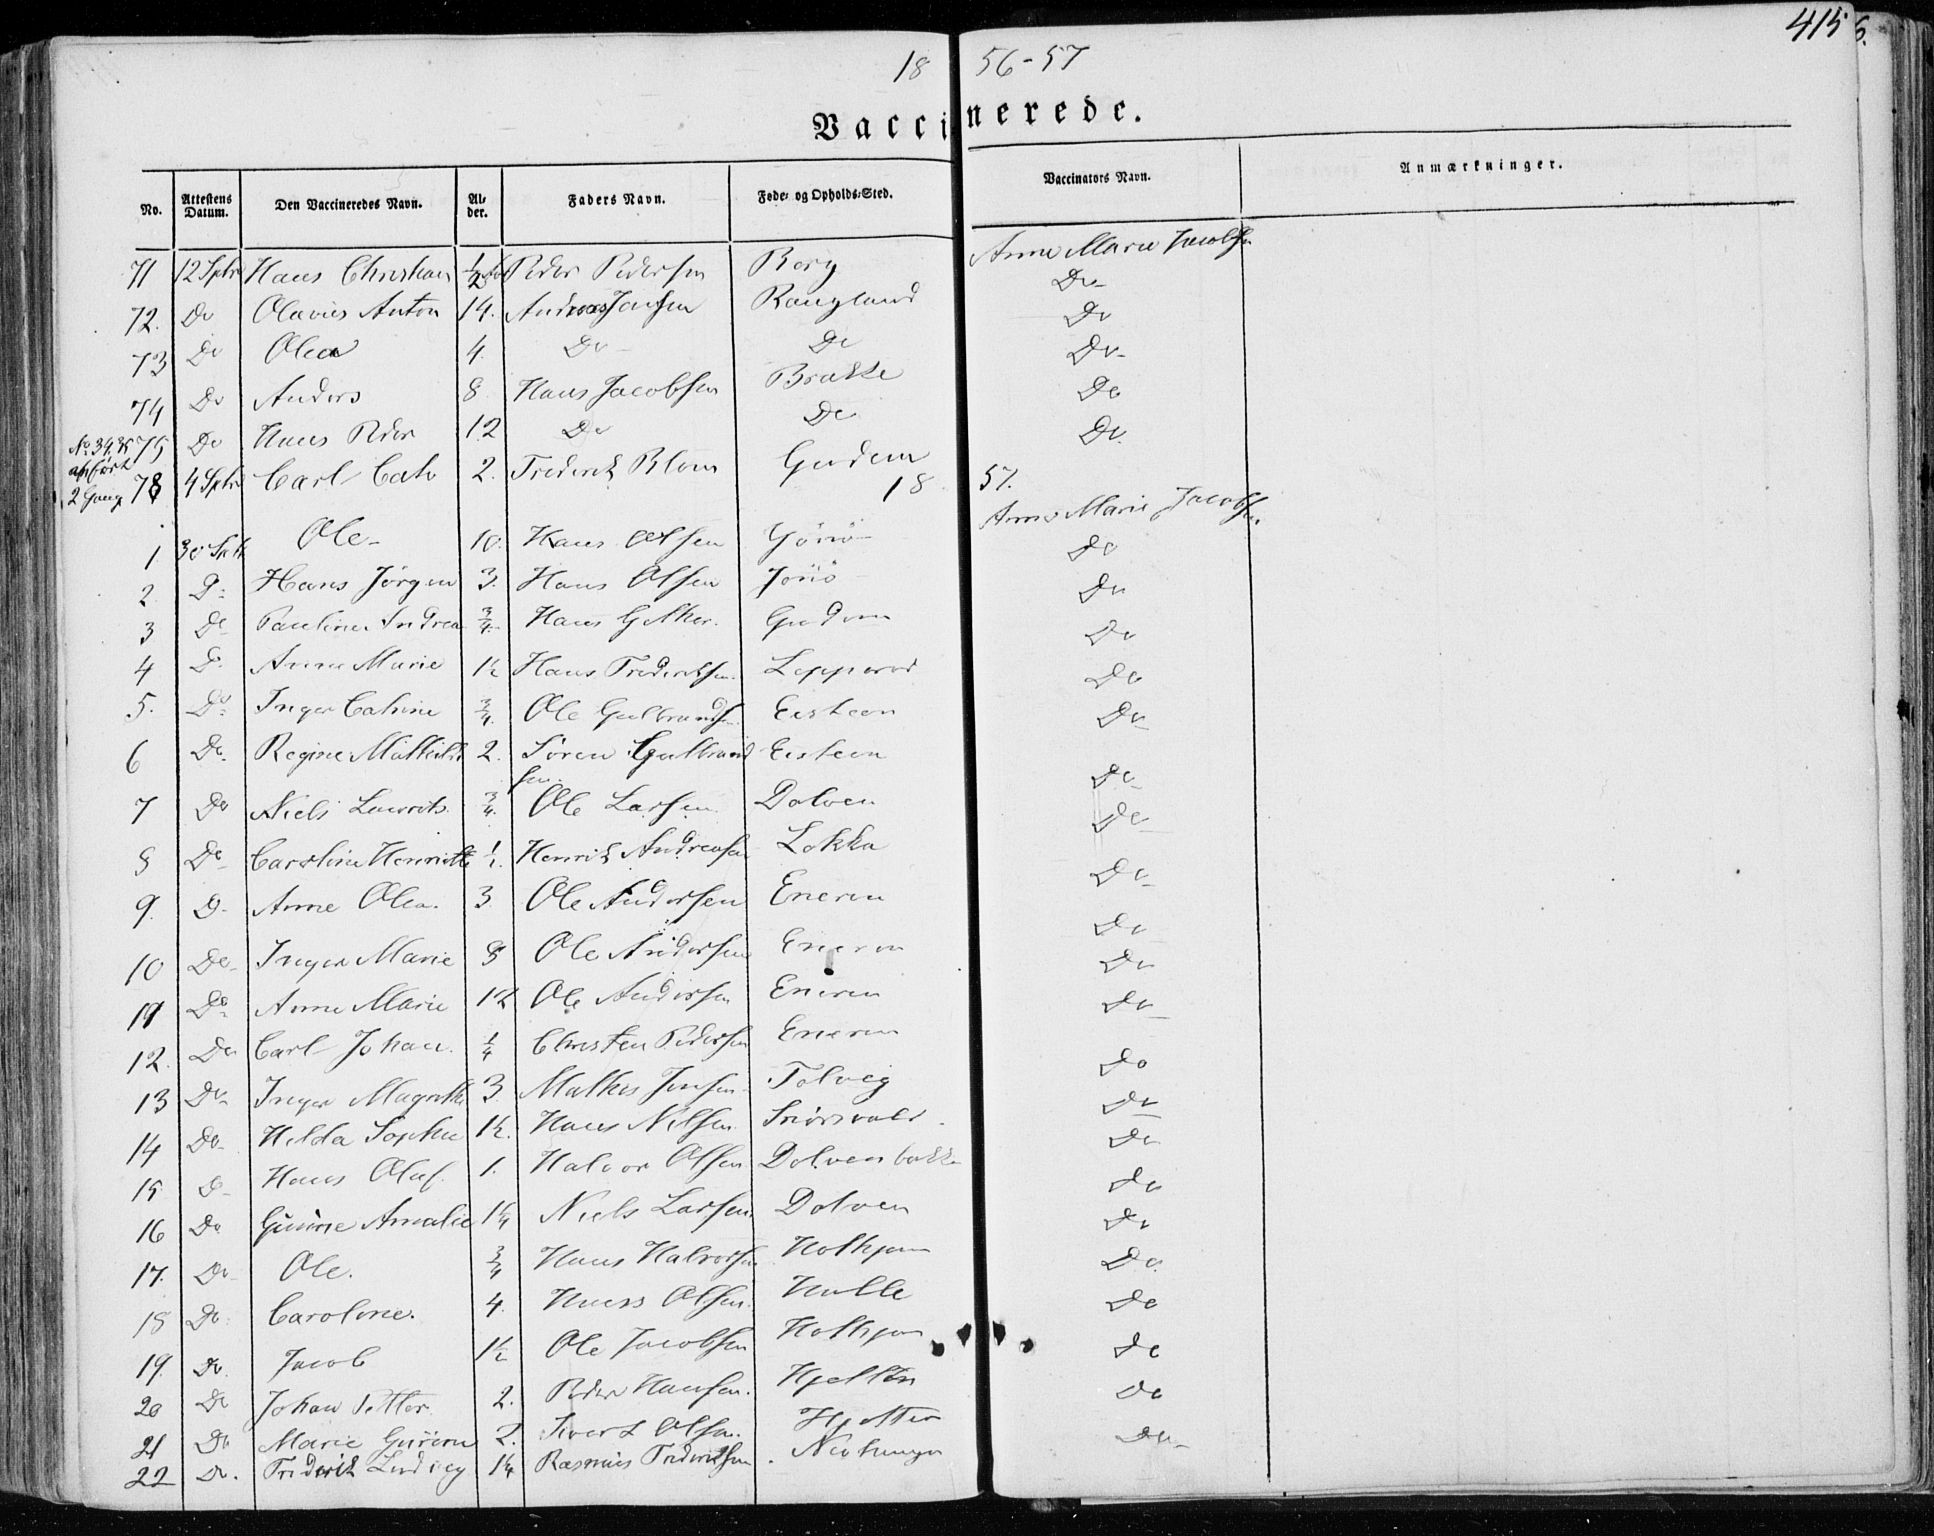 415
6.
18 56-57
Vaccinerede.
No. Attestens Datum. Den Vaccineredes Navn. Al-der. Faders Navn. Føde- og Opholds-Sted. Vaccinators Navn. Anmærkninger.
71 12 Sptr Hans Christian 1/2 Peder Pedersen Borg Anne Marie Jacobsen
72. Do Olavus Anton 14. Andreas Jensen Haugland Do
73 Do Olea 4. Do Do Do
74 Do Anders 8 Hans Jacobsen Brække Do
No 34, 35 75 Do Hans Peder 12 Do Do Do
anført
2 Gang 78 4 Sptr Carl 2. Frederik Blom Gudem Do
18 57.
1. 30 Sptr Ole 10. Hans Olsen Gjönö Anne Marie Jacobsen
2. Do Hans Jörgen 3. Hans Olsen Jönö Do
3 Do Pauline Andrea 3/4 Hans Gudem Do
4 Do Anne Marie 1½ Hans Frederiksen Lepperød Do
5. Do Inger Cathrine 3/4. Ole Gulbrands. Eisteen Do
6 Do Regine Mathilde 2. Sören Gulbrand Eisteen Do
sen.
7 Do Niels Laurits 3/4. Ole Larsen Dolven Do
8 Do Caroline Henriette Henrik Andreasen Lokka Do
9. Do Anne Olea. 3 Ole Andersen Eneren Do
10 Do Inger Marie 8 Ole Andersen Eneren Do
11 Do Anne Marie 12 Ole Andersen Eneren Do
12. Do Carl Johan. 1/4 Christen Pedersen Eneren Do
13 Do Inger Magrethe 3. Mathis Jensen Tolvig Do
14 Do Hilda Sophie 1½. Hans Nilsen Do
15 Do Hans Olaf. 1. Halvor Olsen Dolvenbakke Do
16 Do Gurine Amalie 1¼ Niels Larsen Dolven Do
17. Do Ole. 3/4 Hans Halvorsen Holtjern Do
18 Do Caroline. 4. Hans Olsen. Halle Do
19. Do. Jacob 1½ Ole Jacobsen Holtjern Do
20 Do Johan Petter 2. Peder Hansen. Hjelten Do
21 Do Marie Gurine 2. Sivert Olsen. Hjelten Do
22 Do. Frederik Ludvig 1¼ Rasmus Frederiksen Do